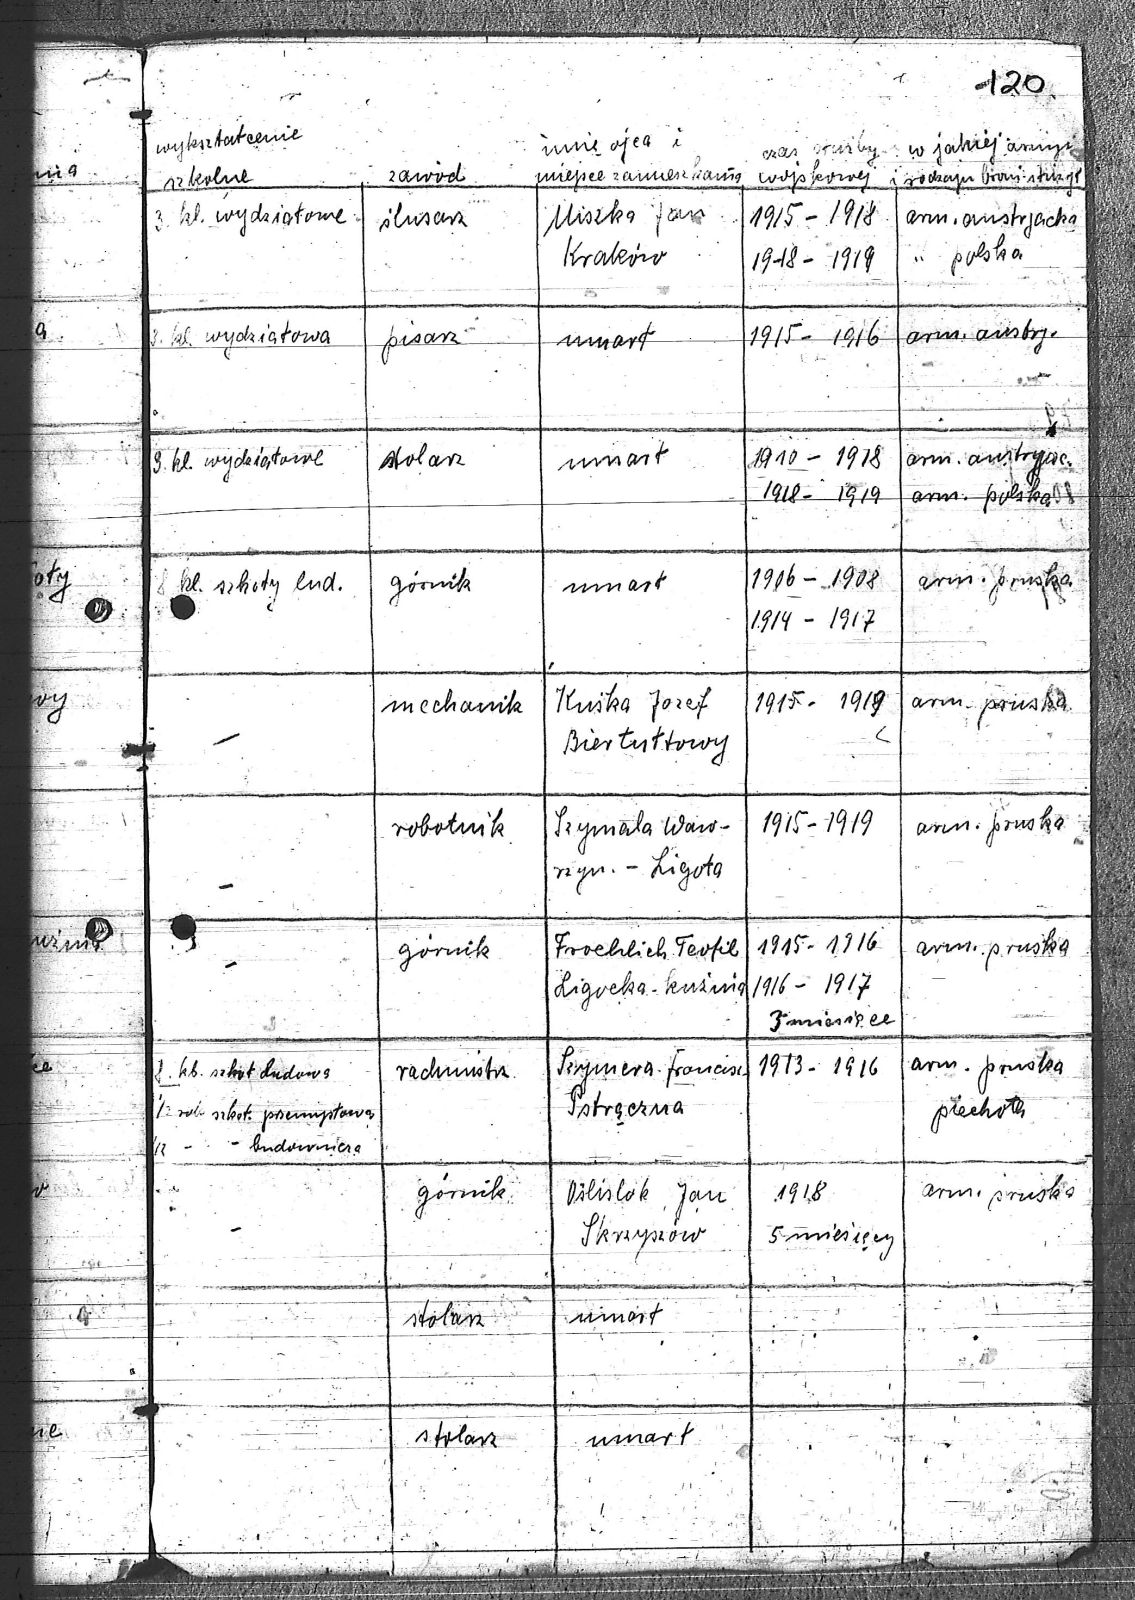 120
wykształcenie szkolne
zawód
imię ojca i miejsce zamieszkania
czas służby wojskowej
w jakiej armji i rodzaju broni służył
3. kl. wydziałowe ślusarz Miszka Jan 1915 - 1918 arm. austrjacka
Kraków 1918 - 1919 " polska
3. kl. wydziałowa pisarz umarł 1915 - 1916 arm. austrj.
3. kl. wydziałowe stolarz umarł 1910 - 1918 arm. austryjac.
1918 - 1919 arm. polska
8 kl. szkoły lud. górnik umarł 1906 - 1908 arm. pruska
1914 - 1917
- mechanik Kuśka Jozef 1915 - 1919 arm. pruska
Biertułtowy
- robotnik Szymala Waw- 1915 - 1919 arm. pruska
rzyn. - Ligota
- górnik Froehlich Teofil 1915 - 1916 arm. pruska
Ligocka-kuźnia 1916 - 1917
3 miesiące
8. kl. szkoł ludowa rachmistrz Szymera Francisz. 1913 - 1916 arm. pruska
1/2 rok szkoł. przemysłowa Pstrążna piechota
1/2 - - budownicza
- górnik Oślislok Jan 1918 arm. pruska
Skrzyszów 5 miesięcy
stolarz umarł
stolarz umarł
oły
wy
uźnia